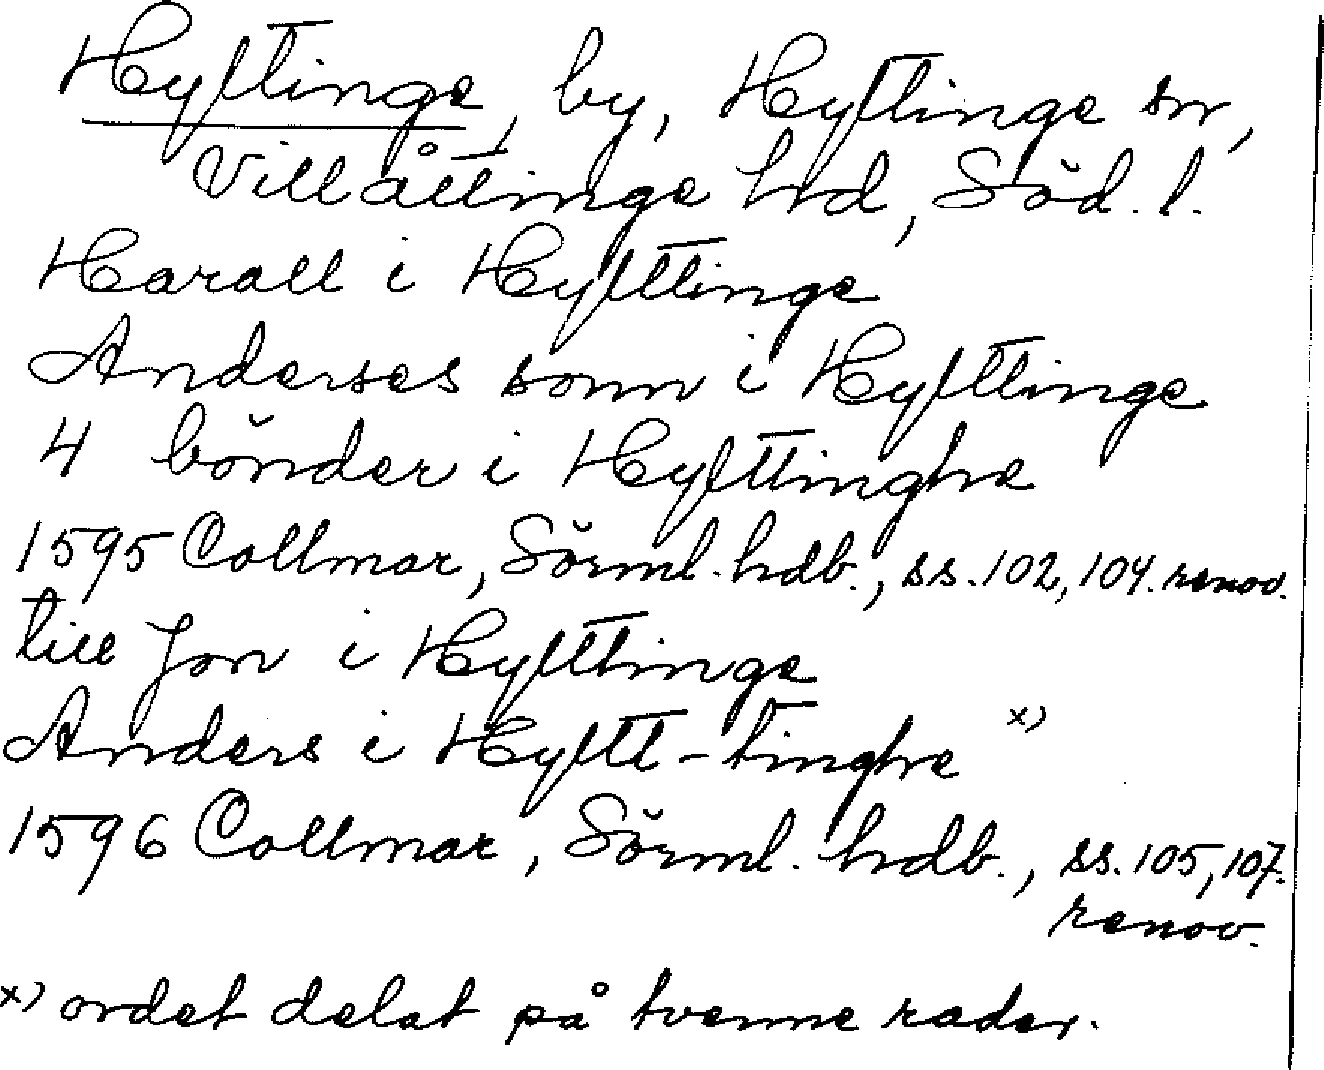 Hyltinge, by, Hyltinge sn,
Villåttinge hd, Söd. l.
Harall i Hylttinge
Anderses sonn i Hylttinge
4 bönder i Hylttinghe
1595 Collmar, Sörml. hdb., ss. 102, 104. renov.
till Jon i Hylttinge
Anders i Hyltt-tinghe x)
1596 Collmar, Sörml. hdb., ss. 105, 107.
renov.
x) ordet delat på tvenne rader.